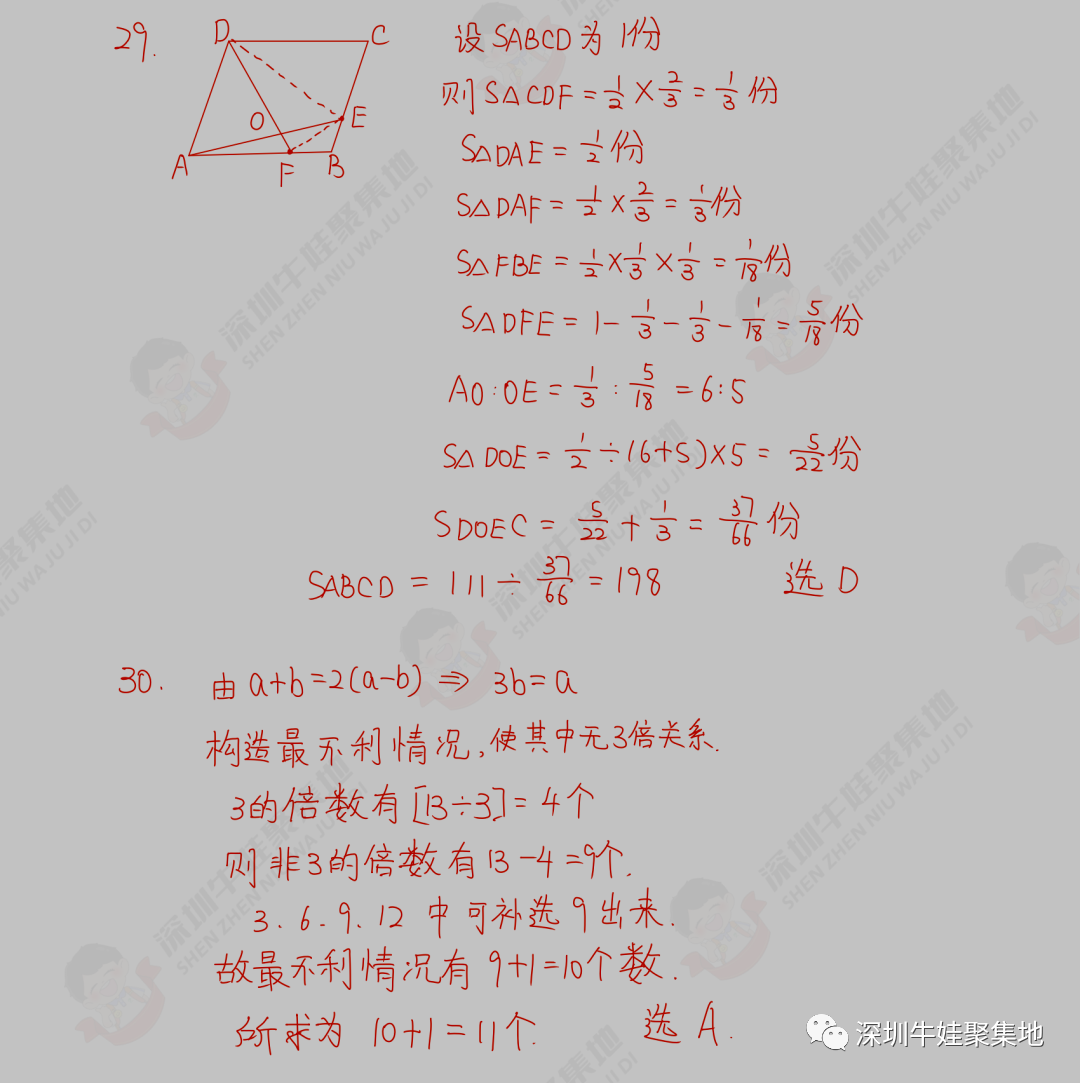 29.
D C
O E
A F B
设SABCD为1份
则S△CDF=1/2×2/3=1/3份
S△DAE=1/2份
S△DAF=1/2×2/3=1/3份
S△FBE=1/2×1/3×1/3=1/18份
S△DFE=1-1/3-1/3-1/18=5/18份
AO:OE=1/3:5/18=6:5
S△DOE=1/2÷(6+5)×5=5/22份
SDOEC=5/22+1/3=37/66份
SABCD=111÷37/66=198 选D
30. 由a+b=2(a-b)⇒3b=a
构造最不利情况,使其中无3倍关系.
3的倍数有[13÷3]=4个
则非3的倍数有13-4=9个.
3.6.9.12中可补选9出来.
故最不利情况有9+1=10个数.
所求为10+1=11个. 选A.
深圳牛娃聚集地
SHEN ZHEN NIU WA JU JI DI
深圳牛娃聚集地